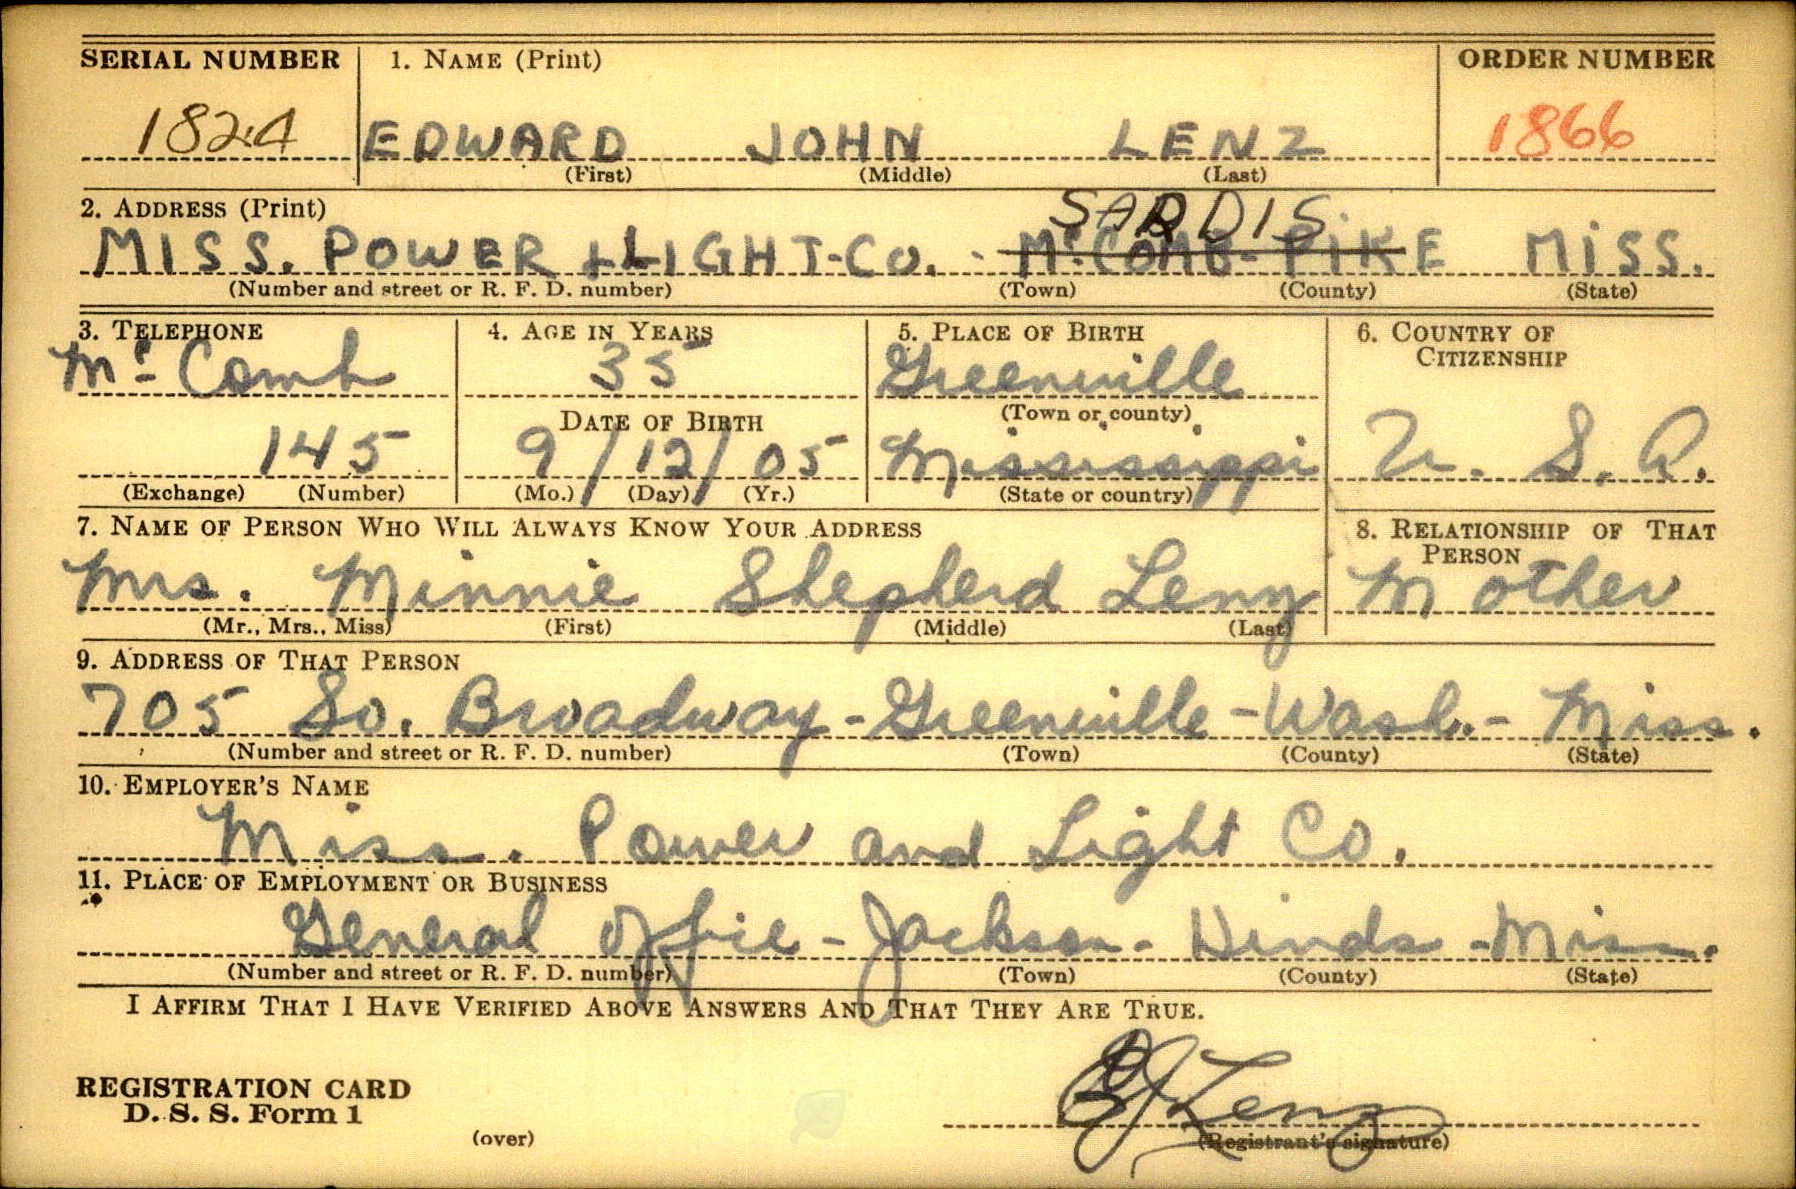 SERIAL NUMBER 1. NAME (Print) ORDER NUMBER
1824 EDWARD JOHN LENZ 1866
(First) (Middle) (Last)
2. ADDRESS (Print) SARDIS
MISS. POWER + LIGHT-CO. - Mc.COMB-PIKE MISS.
(Number and street or R. F. D. number) (Town) (County) (State)
3. TELEPHONE 4. AGE IN YEARS 5. PLACE OF BIRTH 6. COUNTRY OF CITIZENSHIP
Mc Comb 35 Greenville
DATE OF BIRTH (Town or county)
145 9/12/05 Mississippi U. S. A.
(Exchange) (Number) (Mo.) (Day) (Yr.) (State or country)
7. NAME OF PERSON WHO WILL ALWAYS KNOW YOUR ADDRESS 8. RELATIONSHIP OF THAT PERSON
Mrs. Minnie Shepherd Lenz Mother
(Mr., Mrs., Miss) (First) (Middle) (Last)
9. ADDRESS OF THAT PERSON
705 So. Broadway - Greenville - Wash. - Miss.
(Number and street or R. F. D. number) (Town) (County) (State)
10. EMPLOYER'S NAME
Miss. Power and Light Co.
11. PLACE OF EMPLOYMENT OR BUSINESS
General Offie - Jackson - Hinds - Miss.
(Number and street or R. F. D. number) (Town) (County) (State)
I AFFIRM THAT I HAVE VERIFIED ABOVE ANSWERS AND THAT THEY ARE TRUE.
REGISTRATION CARD
D. S. S. Form 1 E J Lenz
(over) (Registrant's signature)